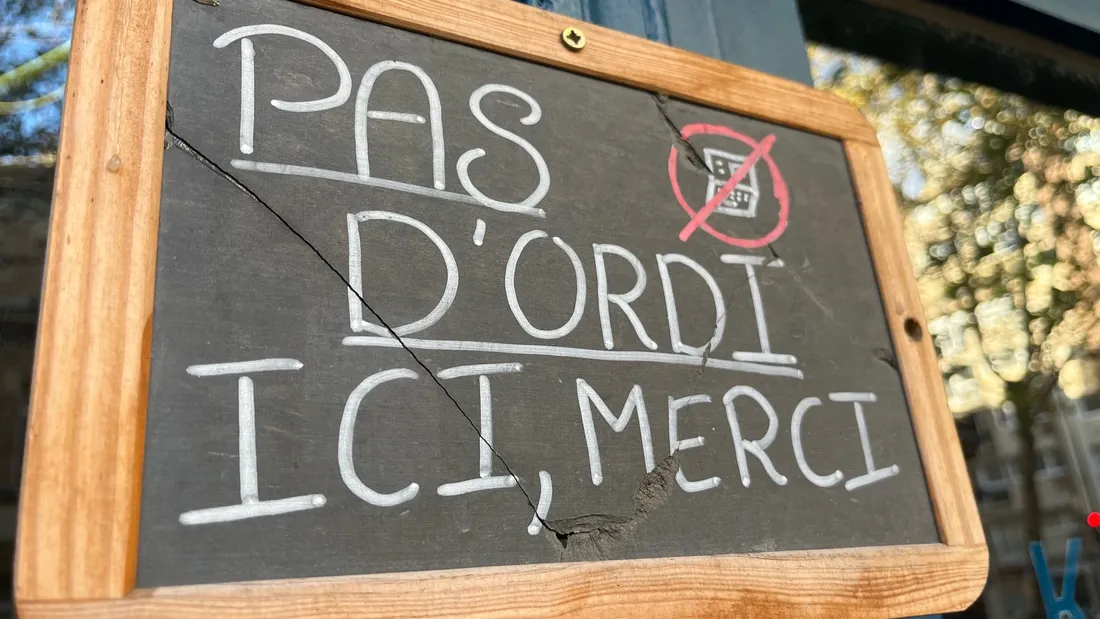 PAS
D'ORDI
ICI, MERCI
K